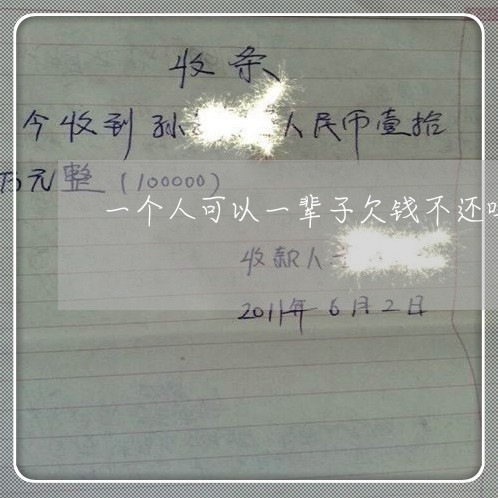 收条
今收到孙 人民币壹拾
万元整(100000)
一个人可以一辈子欠钱不还
收款人
2011年6月2日